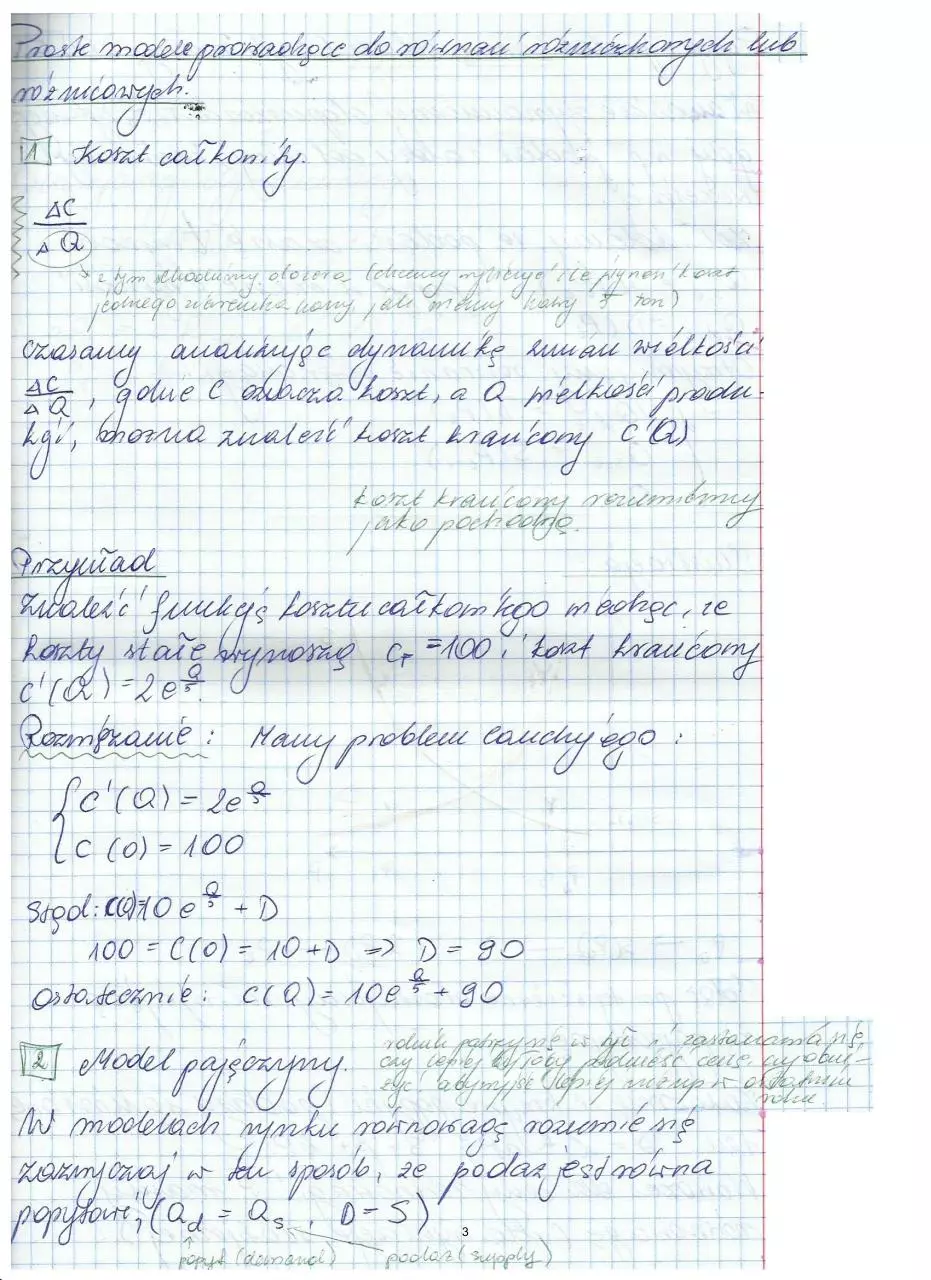 Proste modele prowadzące do równań różniczkowych lub
różnicowych.
1 Koszt całkowity.
ΔC
ΔQ
z tym schodzimy do zera (chcemy wyliczyć ile wynosi koszt
jednego ziarenka kawy, jak mamy kawy t ton)
Czasami analizując dynamikę zmian wielkości
ΔC/ΔQ, gdzie C oznacza koszt, a Q wielkości produ-
kcji, można znaleźć koszt krańcowy C'(Q)
koszt krańcowy rozumiemy
jako pochodną.
Przykład
Znaleźć funkcję kosztu całkowitego wiedząc, że
koszty stałe wynoszą C_F = 100 i koszt krańcowy
C'(Q) = 2e^{Q/5}.
Rozwiązanie: Mamy problem Cauchy'ego:
C'(Q) = 2e^{Q/5}
C(0) = 100
Stąd: C(Q)=10e^{Q/5} + D
100 = C(0) = 10+D => D = 90
Ostatecznie: C(Q) = 10e^{Q/5} + 90
2 Model pajęczyny.
rolnik patrzy się w tył i zastanawia się,
czy lepiej byłoby podnieść cenę, czy obni-
żyć aby wyjść lepiej niż np w ostatnim
roku
W modelach rynku równowagę rozumie się
zazwyczaj w ten sposób, że podaż jest równa
popytowi, (Q_d = Q_s, D = S)
3
popyt (demand) podaż (supply)